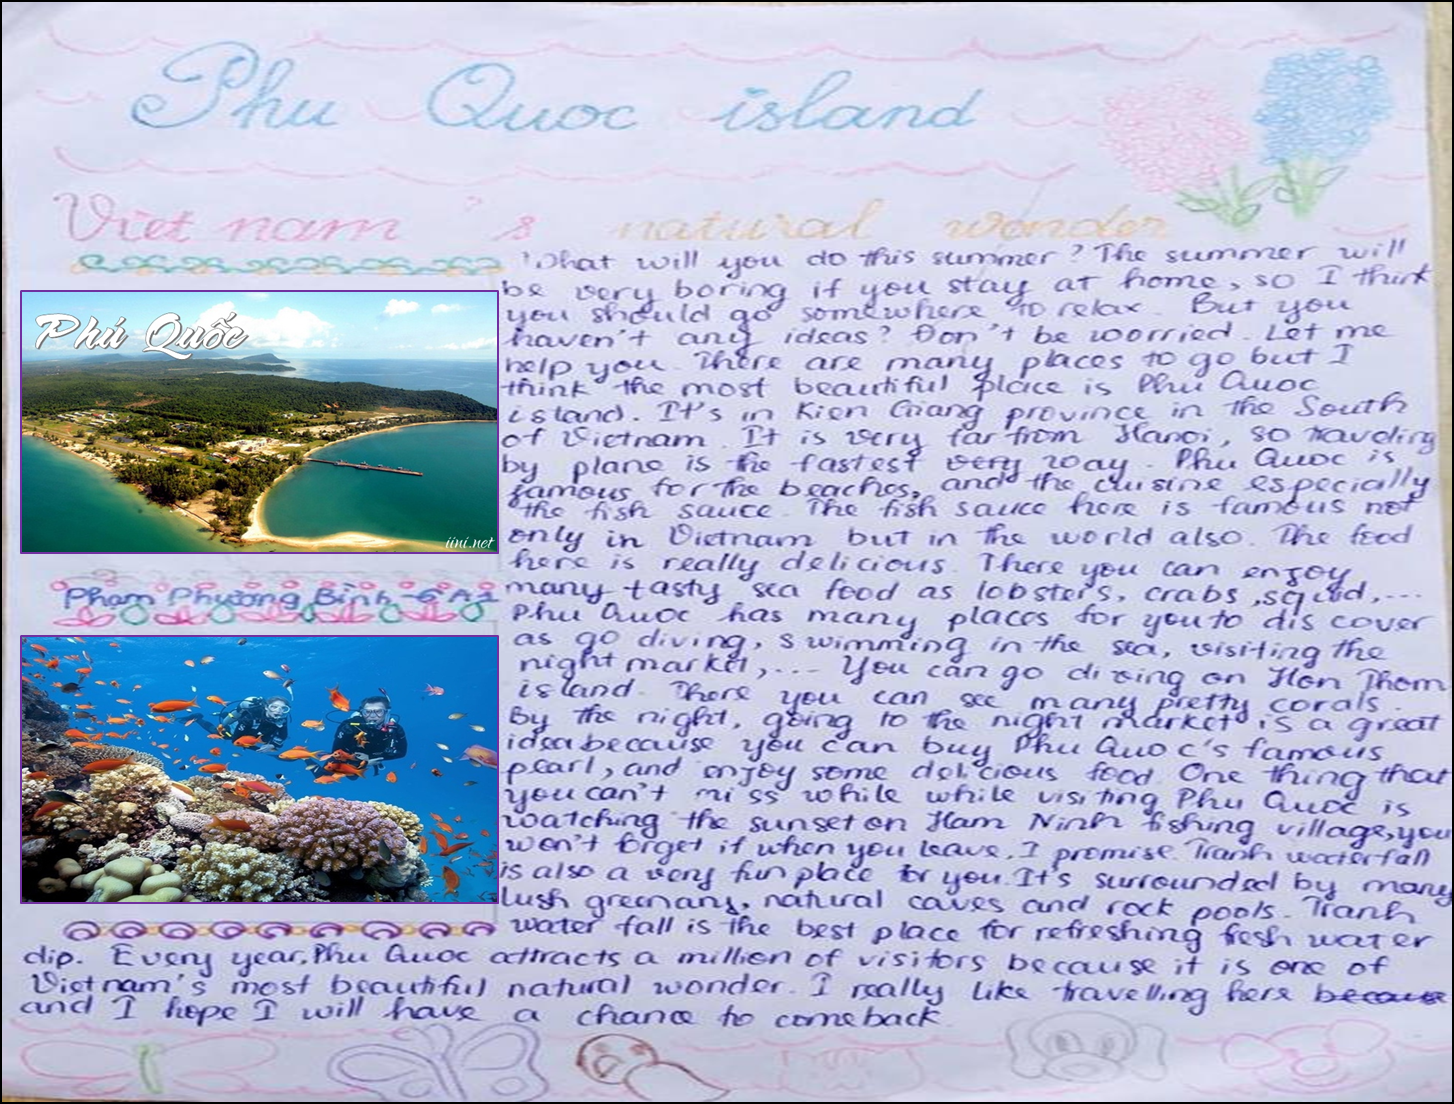 Phu Quoc island
Viet nam's natural wonder
What will you do this summer? The summer will
be very boring if you stay at home, so I think
you should go somewhere to relax. But you
haven't any ideas? Don't be worried. Let me
help you. There are many places to go but I
think the most beautiful place is Phu Quoc
island. It's in Kien Giang province in the South
of Vietnam. It is very far from Hanoi, so traveling
by plane is the fastest very way. Phu Quoc is
famous for the beaches, and the cuisine especially
the fish sauce. The fish sauce here is famous not
only in Vietnam but in the world also. The food
here is really delicious. There you can enjoy
many tasty sea food as lobsters, crabs, squid,...
Phu Quoc has many places for you to dis cover
as go diving, swimming in the sea, visiting the
night market,... You can go diving on Hon Thom
island. There you can see many pretty corals.
By the night, going to the night market is a great
idea because you can buy Phu Quoc's famous
pearl, and enjoy some delicious food. One thing that
you can't miss while while visiting Phu Quoc is
watching the sunset on Ham Ninh fishing village, you
won't forget it when you leave, I promise. Tranh waterfall
is also a very fun place for you. It's surrounded by many
lush greenany, natural caves and rock pools. Tranh
water fall is the best place for refreshing fresh water
dip. Every year, Phu Quoc attracts a million of visitors because it is one of
Vietnam's most beautiful natural wonder. I really like travelling here because
and I hope I will have a chance to comeback.
Phú Quốc
iini.net
Phạm Phương Bình - 6A1